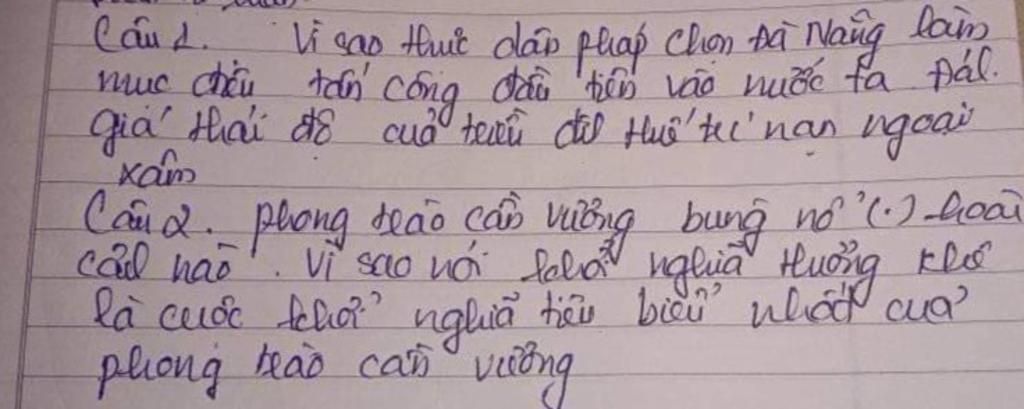 Câu 1. Vì sao thực dân pháp chọn Đà Nẵng làm
mục tiêu tấn công đầu tiên vào nước ta Đánh
giá thái độ của triều đình Huế trước nạn ngoại
xâm
Câu 2. phong trào cần vương bùng nổ (.) hoàn
cảnh nào. Vì sao nói khởi nghĩa Hương Khê
là cuộc khởi nghĩa tiêu biểu nhất của
phong trào cần vương